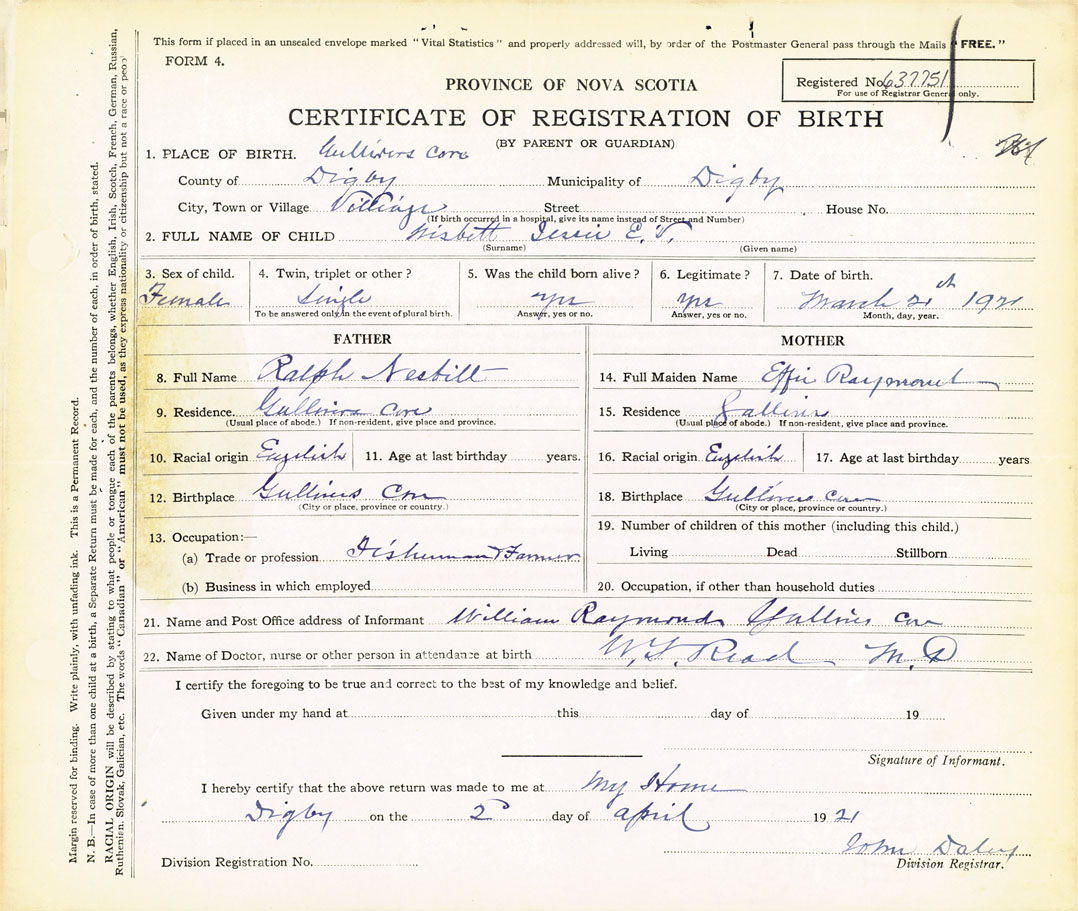 This form if placed in an unsealed envelope marked "Vital Statistics" and properly addressed will, by order of the Postmaster General pass through the Mails "FREE."
FORM 4.
Registered No. 637751
For use of Registrar General only.
PROVINCE OF NOVA SCOTIA
CERTIFICATE OF REGISTRATION OF BIRTH
(BY PARENT OR GUARDIAN)
1. PLACE OF BIRTH. Gullivers Cove
County of Digby Municipality of Digby
City, Town or Village Village Street House No.
(If birth occurred in a hospital, give its name instead of Street and Number)
2. FULL NAME OF CHILD Nisbett Jessie E. V.
(Surname) (Given name)
3. Sex of child. 4. Twin, triplet or other? 5. Was the child born alive? 6. Legitimate? 7. Date of birth.
Female Single yes yes March 21st 1921
To be answered only in the event of plural birth. Answer, yes or no. Answer, yes or no. Month, day, year.
FATHER MOTHER
8. Full Name Ralph Nesbitt 14. Full Maiden Name Effie Raymond
9. Residence. Gullivers Cove 15. Residence Gullivers
(Usual place of abode.) If non-resident, give place and province. (Usual place of abode.) If non-resident, give place and province.
10. Racial origin English 11. Age at last birthday years. 16. Racial origin English 17. Age at last birthday years
12. Birthplace Gullivers Cove 18. Birthplace Gullivers Cove
(City or place, province or country.) (City or place, province or country.)
13. Occupation:— 19. Number of children of this mother (including this child.)
(a) Trade or profession Fisherman & Farmer Living Dead Stillborn
(b) Business in which employed 20. Occupation, if other than household duties
21. Name and Post Office address of Informant William Raymond Gullivers Cove
22. Name of Doctor, nurse or other person in attendance at birth Read M.D
I certify the foregoing to be true and correct to the best of my knowledge and belief.
Given under my hand at this day of 19
Signature of Informant.
I hereby certify that the above return was made to me at My Home
Digby on the 2 day of April 1921
John Daley
Division Registration No. Division Registrar.
Margin reserved for binding. Write plainly, with unfading ink. This is a Permanent Record.
N. B.—In case of more than one child at a birth, a Separate Return must be made for each, and the number of each, in order of birth, stated.
RACIAL ORIGIN will be described by stating to what people or tongue each of the parents belongs, whether English, Irish, Scotch, French, German, Russian,
Ruthenian, Slovak, Galician, etc. The words "Canadian" or "American" must not be used, as they express nationality or citizenship but not a race or peop